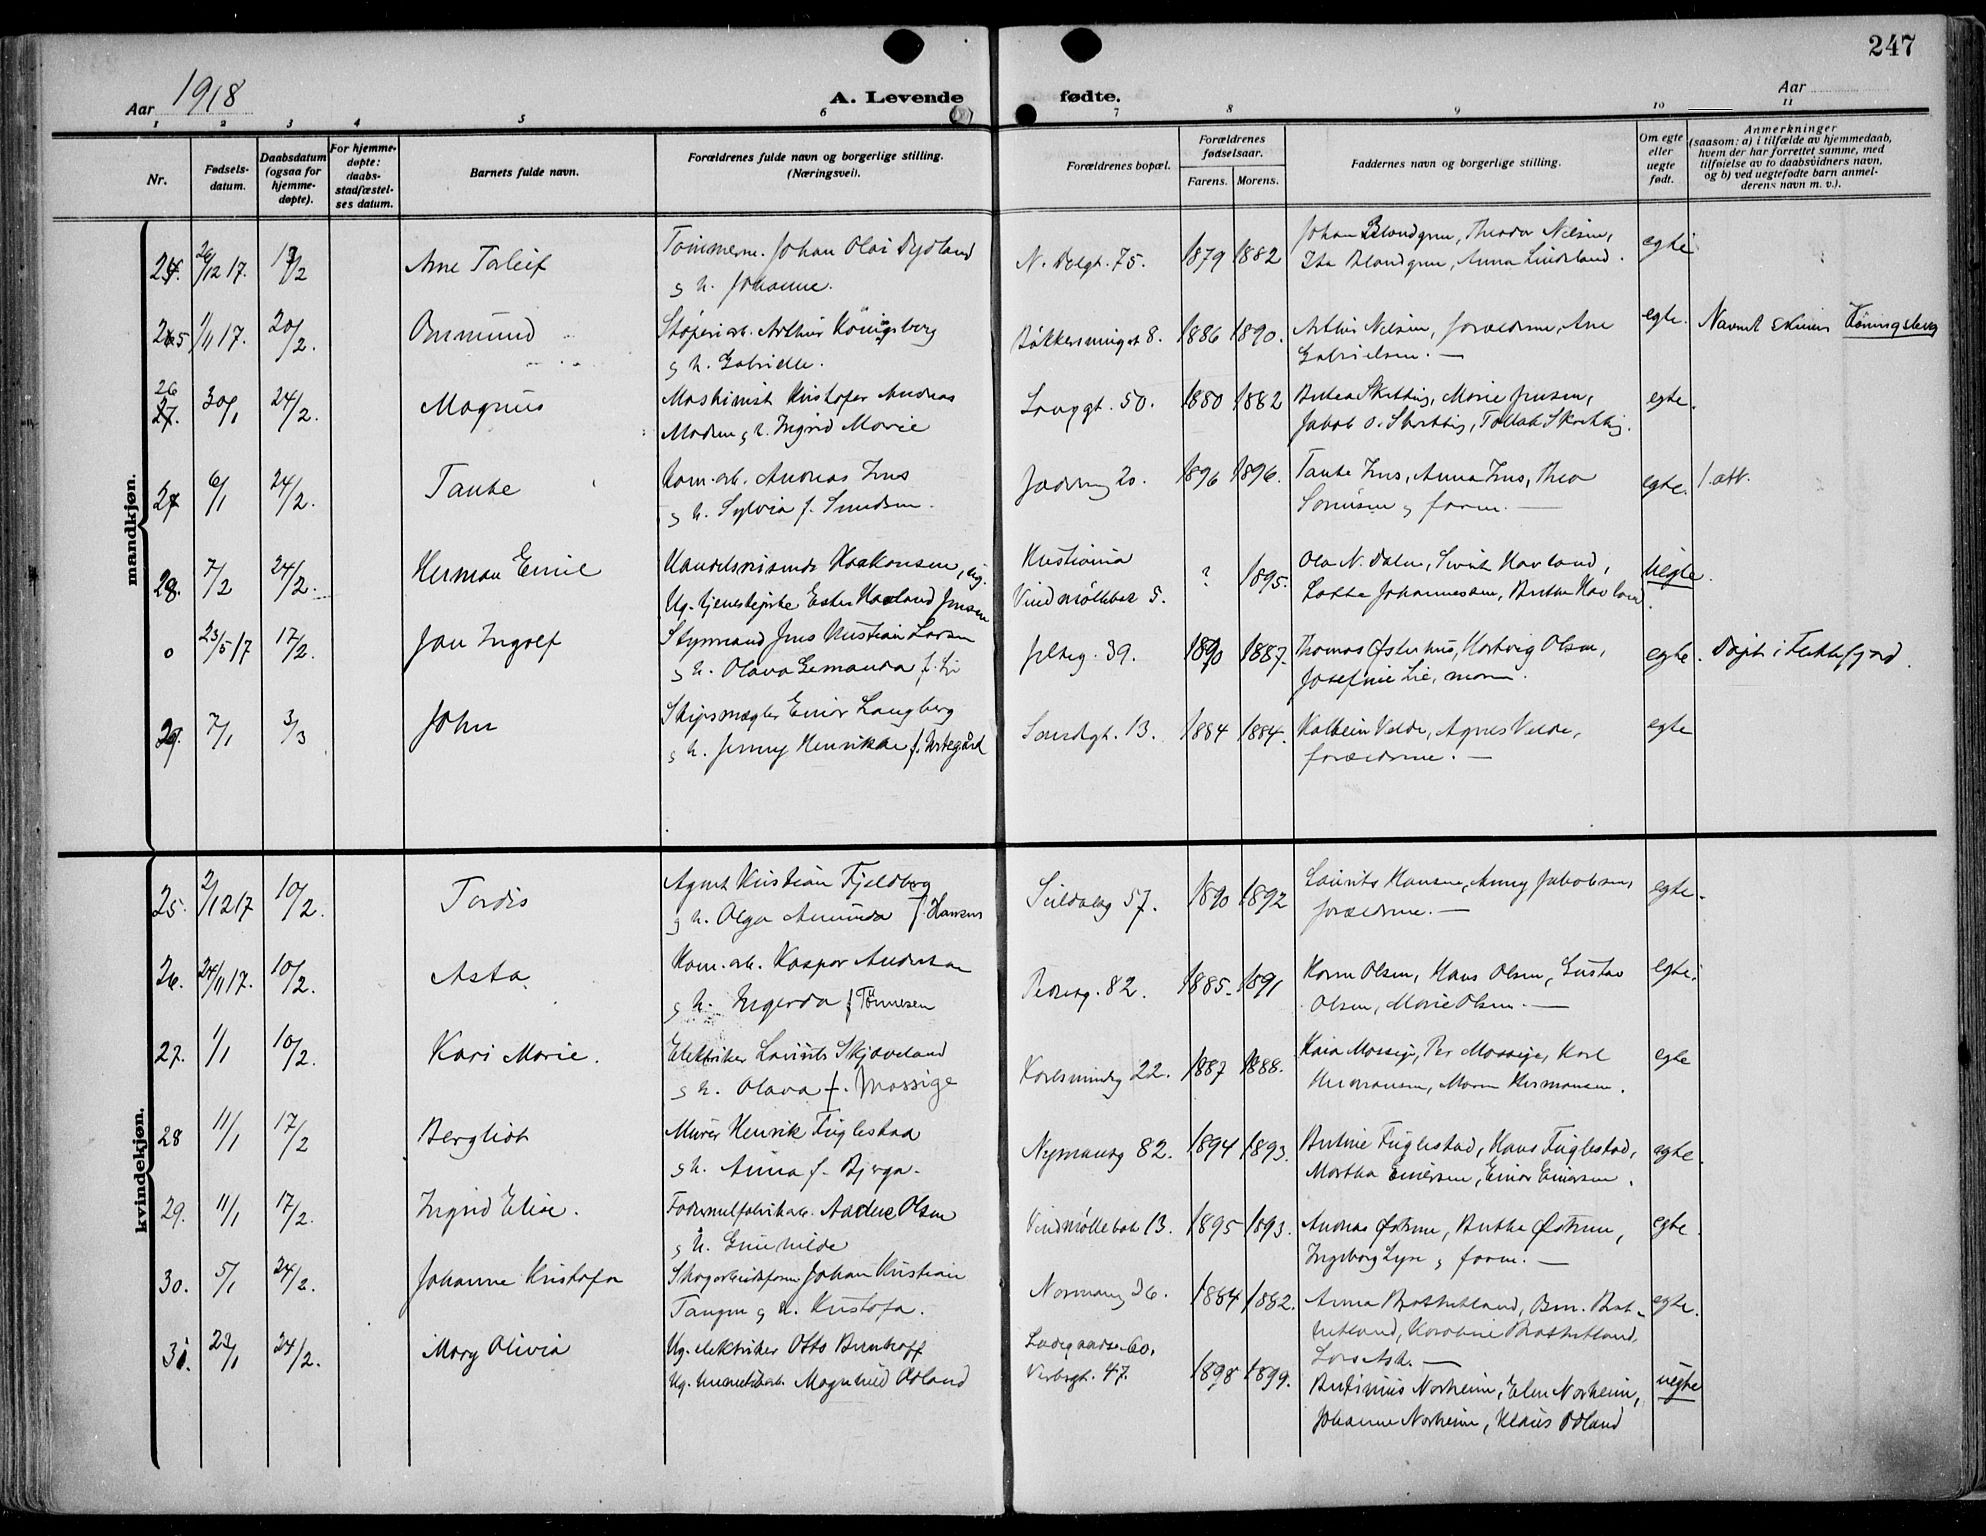 247
Aar 1918
A. Levende fødte.
Aar
1 2 3 4 5 6 7 8 9 10 11
Nr.
Fødsels-
datum.
Daabsdatum
(ogsaa for
hjemme-
døpte).
For hjemme-
døpte:
daabs-
stadfæstel-
ses datum.
Barnets fulde navn.
Forældrenes fulde navn og borgerlige stilling.
(Næringsvei).
Forældrenes bopæl.
Forældrenes
fødselsaar.
Farens. Morens.
Faddernes navn og borgerlige stilling.
Om egte
eller
uegte
født.
Anmerkninger
(saasom: a) i tilfælde av hjemmedaab,
hvem der har forrettet samme, med
tilføielse av to daabsvidners navn,
og b) ved uegtefødte barn anmel-
derens navn m. v.).
mandkjøn.
24. 26/12 17. 17/2 Arne Torleif
Johan Olai Dydland
g h. Johanne.
N. Dalgt. 75. 1879 1882
Johan Blondgren, Theodor Nilsen,
Ida Blondgren, Anna Lindland.
egte
25 1/11 17. 20/2. Omund
Støperiarb. Arthur Königsberg
g h. Gabrielle.
Bøkkersmuget 8. 1886 1890.
Arthur Nilsen, forældrene, Ane
Gabrielsen. —
egte. Navnet skrives Köningsberg
26 30/1 24/2. Magnus
Maskinist Kristofer Andreas
Madsen g h. Ingrid Marie
Langgt. 50. 1880 1882
Berta Skretting, Marie Jensen,
Jakob O. Skretting, Tollak Skretting.
egte.
27 6/1 24/2. Tanke
Kom. arb. Andreas Ims
g h. Sylvia f. Smedsen.
Jæderveg 20. 1896 1896.
Tanke Ims, Anna Ims, Thea
Sørensen g faren. —
egte. 1. att.
28. 7/2 24/2. Herman Emil
Handelsreisende Haakonsen, ug.
Ug. tjenestepike Ester Havland Jensen
Kristiania
Vindmøllebak 5.
? 1895.
Ola N. Dalen, Sivert Havland,
Lotte Johannessen, Berthe Havland.
Uegte.
0 23/5 17 17/2. Jan Ingolf
Styrmand Jens Kristian Larsen
g h. Olava Gemanda f. Lie
Jelseg. 39. 1890 1887.
Thomas Østerhus, Hartvig Olsen,
Josefine Lie, moren.
egte. Døpt i Flekkefjord.
29. 7/1 3/3 John
Skipsmægler Einar Langberg
g h. Jenny Henrikke f. Nortegård
Sandgt. 13. 1884 1884.
Kolbein Velde, Agnes Velde,
forældrene. —
egte
kvindekjøn.
25. 2/12 17 10/2. Tordis
Agent Kristian Fjeldberg
g h. Olga Amunda f. Hansen
Seildalsg 57. 1890 1892
Laurits Hansen, Anny Jakobsen,
forældrene. —
egte.
26. 24/11 17. 10/2. Asta
Kom. arb. Kaspar Andersen
g h. Ingerda f Tønnesen
Pedersg. 82. 1885. 1891
Karen Olsen, Hans Olsen, Gustav
Olsen, Marie Olsen. —
egte.
27. 1/1 10/2. Kari Marie.
Elektriker Laurits Skjæveland
g h. Olava f. Mossige
Karlsmindeg 22. 1887 1888.
Kaia Mossige, Per Mossige, Karl
Hermansen, Maren Hermansen.
egte
28 11/1 17/2 Bergliot
Murer Henrik Fuglestad
g h. Anna f. Bjerga.
Nymansg 82. 1894 1893.
Bertine Fuglestad, Hans Fuglestad,
Martha Einersen, Einar Einersen.
egte.
29. 11/1 17/2. Ingrid Elise.
Fodermelfabrikarb. Aadne Olsen
g h. Gunhilde
Vindmøllebak 13. 1895 1893.
Andreas Østrem, Berthe Østrem,
Ingeborg Lyse g faren. —
egte.
30. 5/1 24/2. Johanne Kristofa
Johan Kristian
Tangen g h. Kristofa.
Normansg 26. 1884 1882.
Anna Brathetland, Bern. Brat-
hetland, Karoline Brathetland,
Lars Ask. —
egte.
31. 22/1 24/2. Mary Olivia
Ug. elektriker Otto Bernhoff
Ug. hermetikarb. Magnhild Ødland
Ladegaardsv 60.
Verksgt. 47.
1898 1899.
Bertinius Norheim, Elen Norheim,
Johanne Norheim, Klaus Ødland
uegte